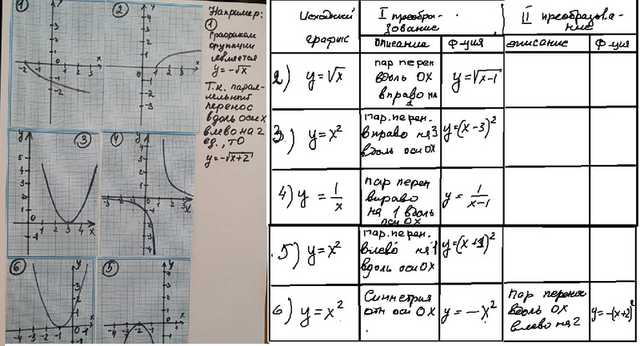 Например:
①
Графиком
функции
является
y = -√x
Т.к. парал-
лельный
перенос
вдоль оси x
влево на 2
ед., то
y = -√x+2
① ② ③ ④ ⑥ ⑤
Исходный
график
I преобра-
зование
II преобразова-
ние
описание
ф-ция
описание
ф-ция
2) y = √x
пар перен
вдоль OX
вправо на
y = √x-1
3) y = x²
пар. перен.
вправо на 3
вдоль оси OX
y = (x-3)²
4) y = 1/x
пар перен
вправо
на 1 вдоль
оси OX
y = 1/x-1
5) y = x²
пар. перен.
влево на 1
вдоль оси OX
y = (x+1)²
6) y = x²
Симметрия
отн оси OX
y = -x²
Пар перенос
вдоль OX
влево на 2
y = -(x+2)²